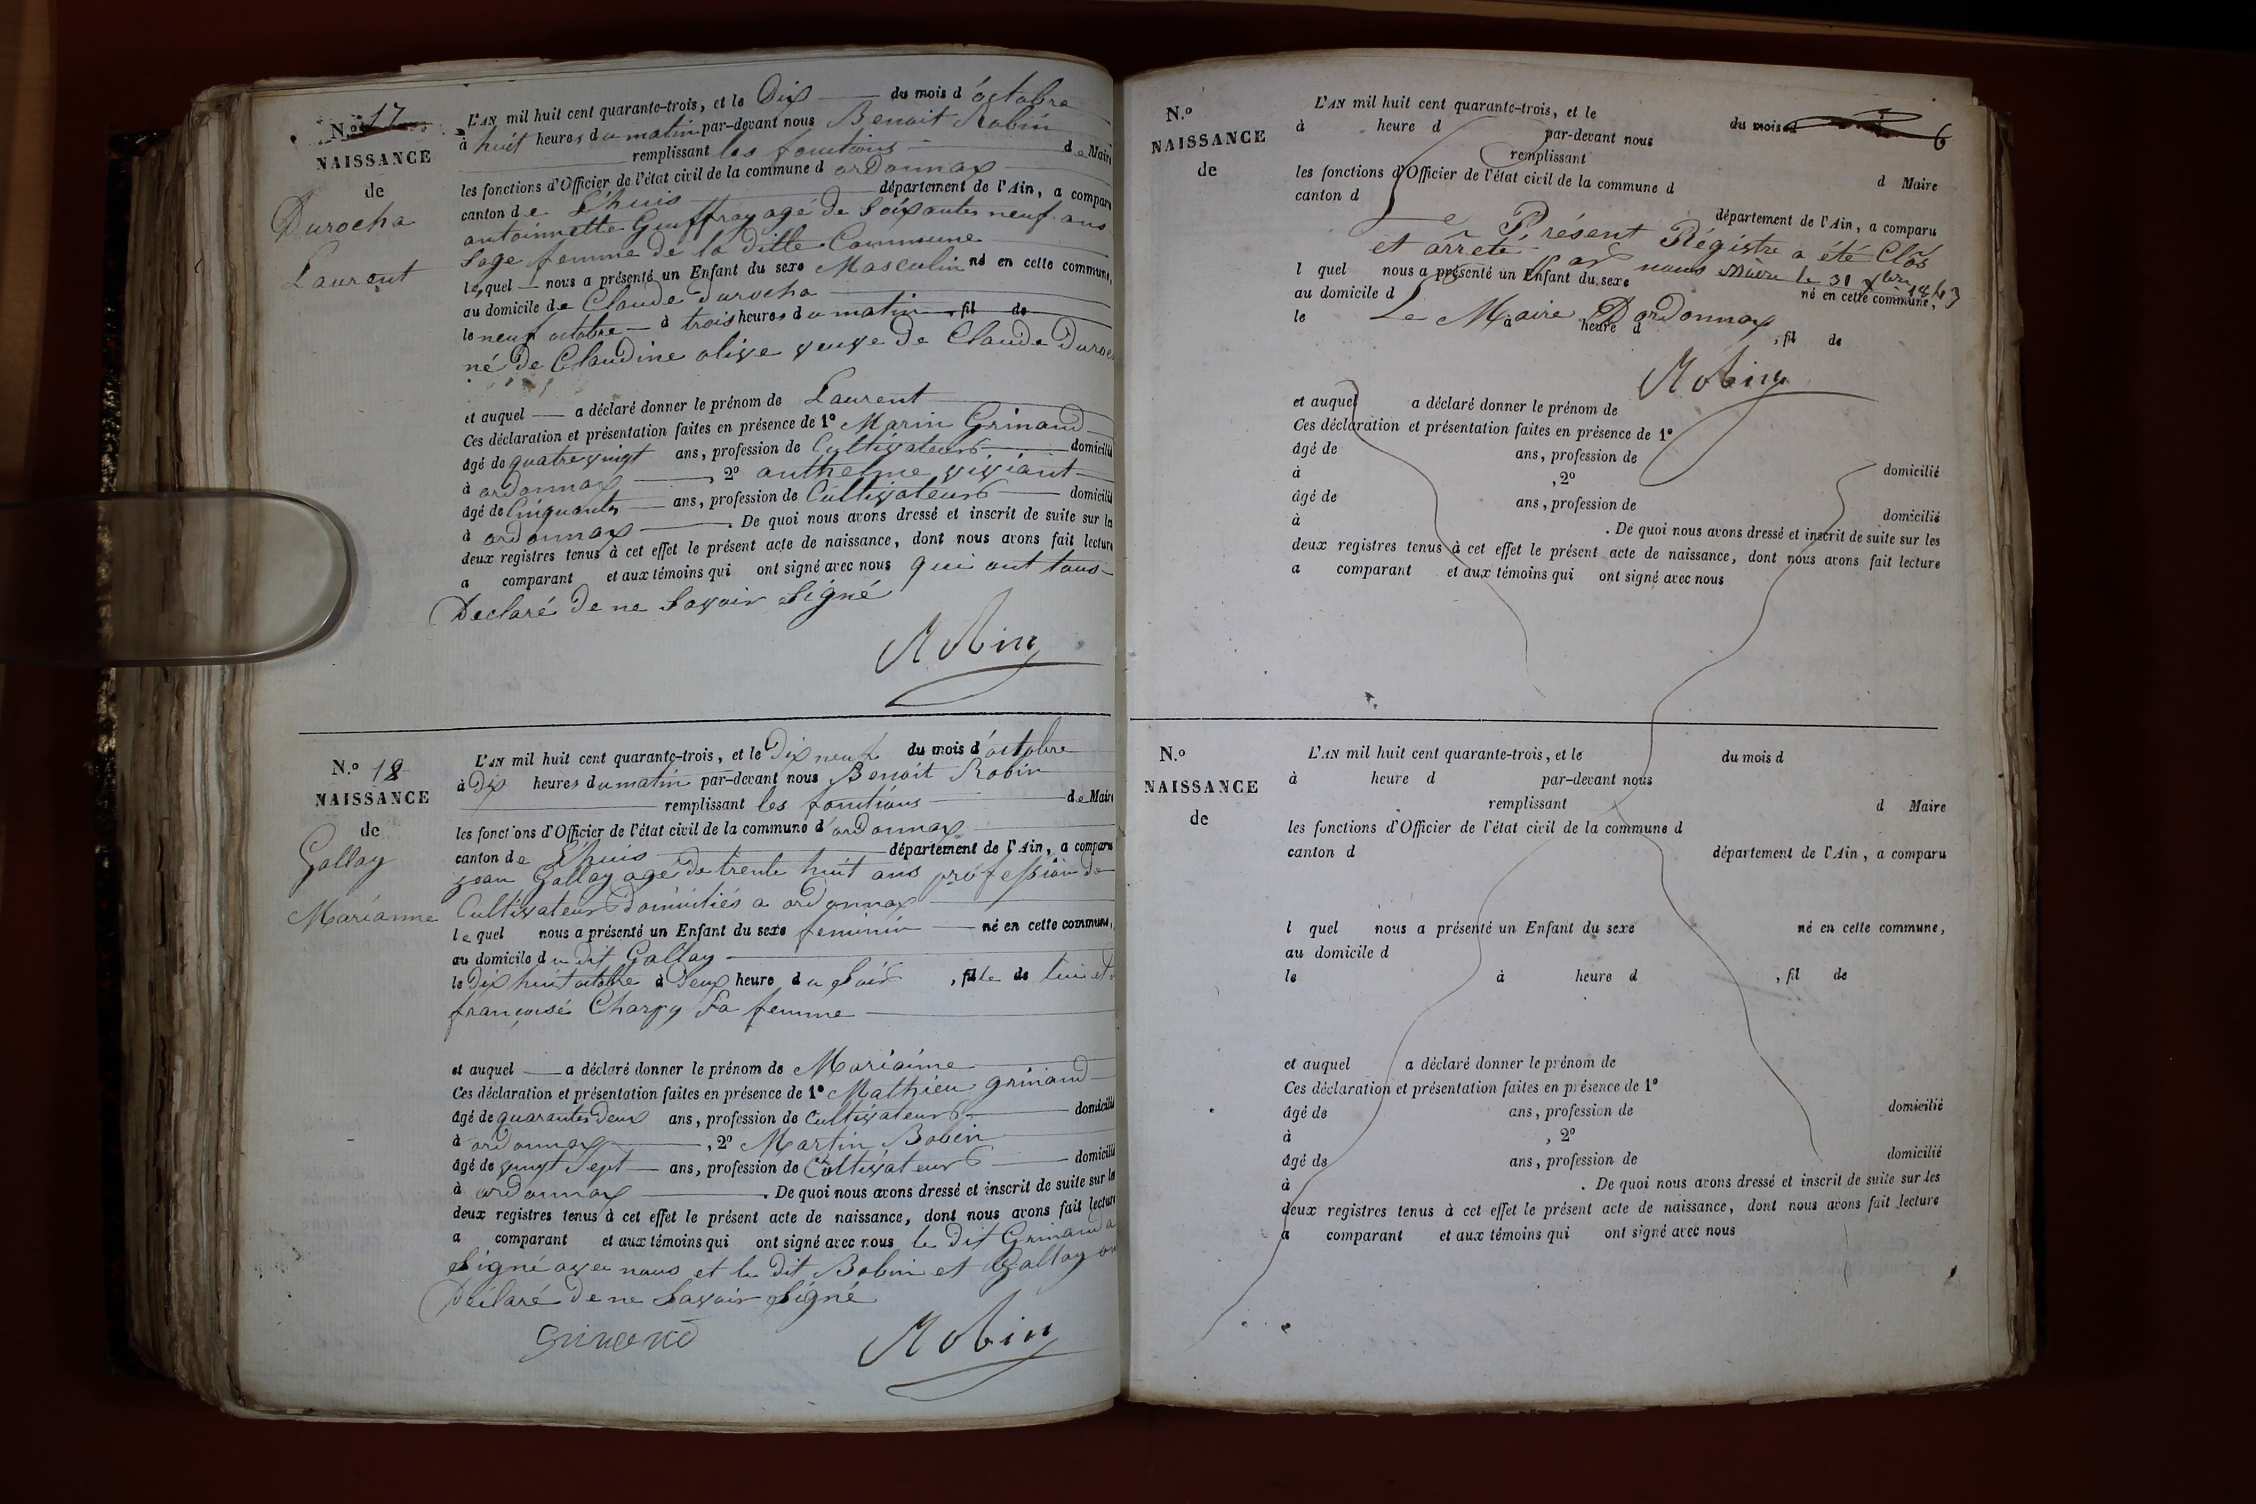 N.º 17
NAISSANCE
de
Durocha
Laurent
L'AN mil huit cent quarante-trois, et le Dix du mois d'octobre
à huit heures du matin par-devant nous Benoit Robin
remplissant les fonctions de Maire
les fonctions d'Officier de l'état civil de la commune d ordonnax
canton de Lhuis département de l'Ain, a comparu
antoinnette Gouffray agé de Soixantes neuf ans
Sage femme de la ditte Commune
lequel nous a présenté un Enfant du sexe Masculin né en cette commune,
au domicile de Claude Durocha
le neuf octobre à trois heures du matin, fil de
né de Claudine olive veuve de Claude Duroc
et auquel a déclaré donner le prénom de Laurent
Ces déclaration et présentation faites en présence de 1º Marin Grinand
âgé de quatre vingt ans, profession de Cultivateur domicilié
à ordonnax, 2º anthelme viviant
âgé de Cinquantes ans, profession de Cultivateur domicilié
à ordonnax. De quoi nous avons dressé et inscrit de suite sur le
deux registres tenus à cet effet le présent acte de naissance, dont nous avons fait lecture
a comparant et aux témoins qui ont signé avec nous qui ont tous
Declaré de ne Savoir Signé
Robin
N.º 18
NAISSANCE
de
Gallay
Marianne
L'AN mil huit cent quarante-trois, et le Dix neuf du mois d'octobre
à Dix heures du matin par-devant nous Benoit Robin
remplissant les fonctions de Maire
les fonctions d'Officier de l'état civil de la commune d'ordonnax
canton de Lhuis département de l'Ain, a comparu
jean Gallay agé de trente huit ans profession de
Cultivateur Domiciliés a ordonnax
lequel nous a présenté un Enfant du sexe feminin né en cette commune,
au domicile du dit Gallay
le Dix huit octobre à Deux heure du Soir, fille de lui et
françoise Charvy Sa femme
et auquel a déclaré donner le prénom de Marianne
Ces déclaration et présentation faites en présence de 1º Mathieu grinand
âgé de quarantes deux ans, profession de Cultivateur domicilié
à ordonnax, 2º Martin Bobin
âgé de vingt Sept ans, profession de Cultivateur domicilié
à ordonnax. De quoi nous avons dressé et inscrit de suite sur les
deux registres tenus à cet effet le présent acte de naissance, dont nous avons fait lecture
a comparant et aux témoins qui ont signé avec nous le dit Grinand a
Signé avec nous et le dit Bobin et Gallay on
Déclaré de ne Savoir Signé
Grinand Robin
N.º
NAISSANCE
de
6
L'AN mil huit cent quarante-trois, et le du mois d
à heure d par-devant nous
remplissant d Maire
les fonctions d'Officier de l'état civil de la commune d
canton d département de l'Ain, a comparu
Le Présent Régistre a été Clos
et arrêté par nous Maire le 31 Xbre 1843
l quel nous a présenté un Enfant du sexe né en cette commune,
au domicile d
Le Maire D'ordonnax
le à heure d, fil de
Robin
et auquel a déclaré donner le prénom de
Ces déclaration et présentation faites en présence de 1º
âgé de ans, profession de domicilié
à, 2º
âgé de ans, profession de domicilié
à. De quoi nous avons dressé et inscrit de suite sur les
deux registres tenus à cet effet le présent acte de naissance, dont nous avons fait lecture
a comparant et aux témoins qui ont signé avec nous
N.º
NAISSANCE
de
L'AN mil huit cent quarante-trois, et le du mois d
à heure d par-devant nous
remplissant d Maire
les fonctions d'Officier de l'état civil de la commune d
canton d département de l'Ain, a comparu
l quel nous a présenté un Enfant du sexe né en cette commune,
au domicile d
le à heure d, fil de
et auquel a déclaré donner le prénom de
Ces déclaration et présentation faites en présence de 1º
âgé de ans, profession de domicilié
à, 2º
âgé de ans, profession de domicilié
à. De quoi nous avons dressé et inscrit de suite sur les
deux registres tenus à cet effet le présent acte de naissance, dont nous avons fait lecture
a comparant et aux témoins qui ont signé avec nous